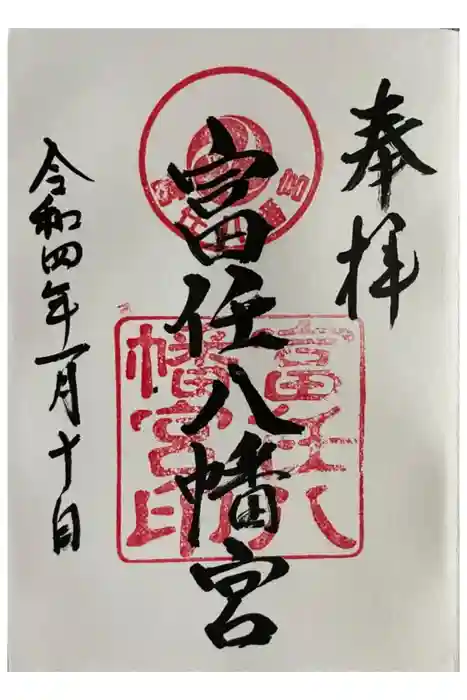 奉拝
富任八幡宮
令和四年一月十日
富任八
幡宮印